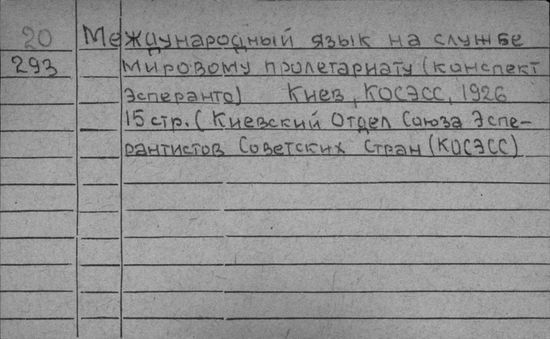 20 Международный язык на службе
293 мировому пролетариату (конспект
эсперанто) Киев, КОСЭСС, 1926
15 стр. (Киевский Отдел Союза Эспе-
рантистов Советских Стран (КОСЭСС)